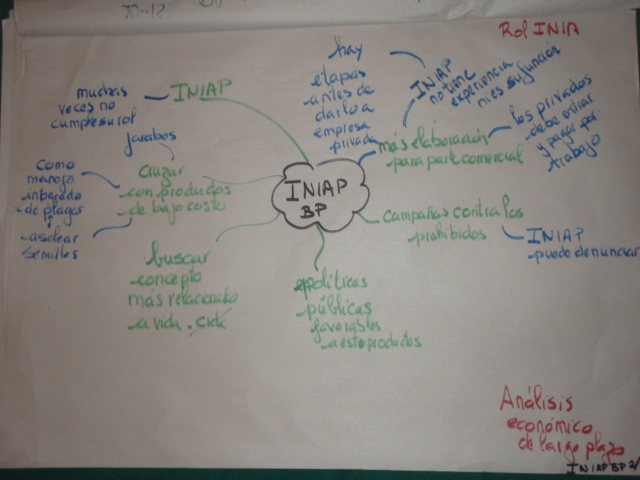 Rol INIA
hay
etapas
antes de
darlo a
empresa
privada
INIAP
no tiene
experiencia
ni es su función
INIAP
muchas
veces no
cumpre su rol
más elaboración
para part comercial
los privados
debe entrar
y pagar por
trabajo
cruzar
con productos
de bajo costo
como
manejo
integrado
de plagas
semilles
INIAP
BP
campañas contra los
prohibidos
INIAP
puede denunciar
buscar
concepto
más relacionado
a vida
políticas
públicas
favorables
a esto productos
Análisis
económico
de largo plazo
INIAP BP 2/